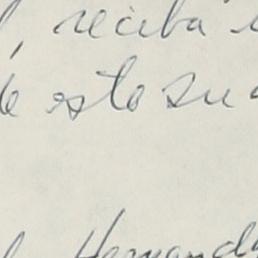 , reciba
esto su
Hernand